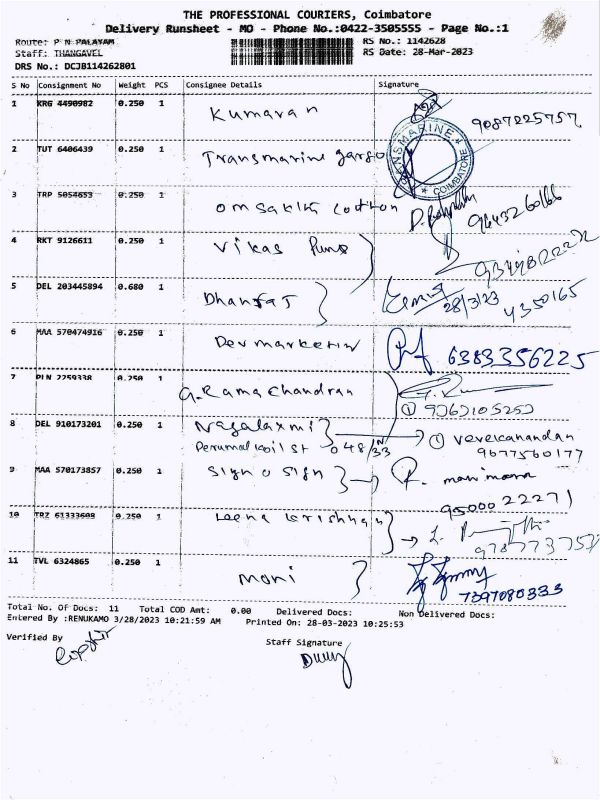 THE PROFESSIONAL COURIERS, Coimbatore
Delivery Runsheet - MO - Phone No.:0422-3505555 - Page No.:1
Route: P N PALAYAM RS No.: 1142628
Staff: THANGAVEL RS Date: 28-Mar-2023
DRS No.: DCJB114262801
S No Consignment No Weight PCS Consignee Details Signature
1 KRG 4490982 0.250 1 Kumaran 9087225757
2 TUT 6406439 0.250 1 Transmarine
TRANSMARINE COIMBATORE
3 TRP 5054653 0.250 1 om sakthi 9843260166
4 RKT 9126611 0.250 1 Vikas
5 DEL 203445894 0.680 1 Dhanraj 28/3/23
6 MAA 570474916 0.250 1 Dev marketing 6383356225
7 PLN 2259338 0.250 1 G. Rama Chandran
① 9363105253
8 DEL 910173201 0.250 1 Nagalaxmi ① vevekanandan
Perumal koil st 9677560177
9 MAA 570173857 0.250 1 Sign o Sign
9500022271
10 TRZ 61333608 0.250 1 Leena krishnan
11 TVL 6324865 0.250 1 moni
7397080333
Total No. Of Docs: 11 Total COD Amt: 0.00 Delivered Docs: Non Delivered Docs:
Entered By :RENUKAMO 3/28/2023 10:21:59 AM Printed On: 28-03-2023 10:25:53
Verified By Staff Signature